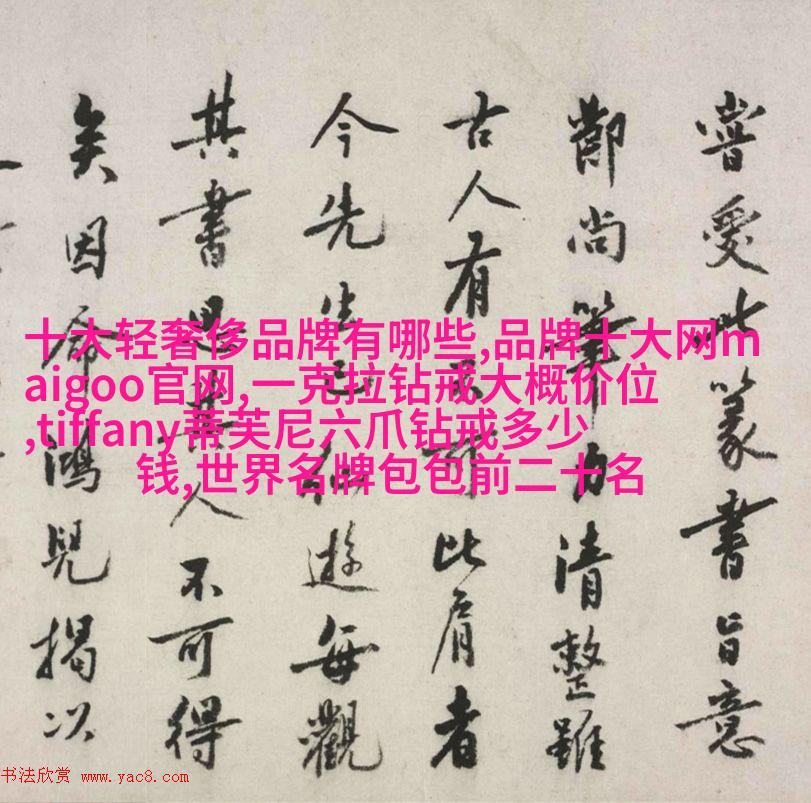 十大轻奢侈品牌有哪些,品牌十大网m
aigoo官网,一克拉钻戒大概价位
,tiffany蒂芙尼六爪钻戒多少
钱,世界名牌包包前二十名
嘗愛此篆書旨意
尚筆力清整雖
古人有比肩者
今先生已仙遊每觀
其書思其人不可得
矣因命鴻兒揭以
书法欣赏 www.yac8.com